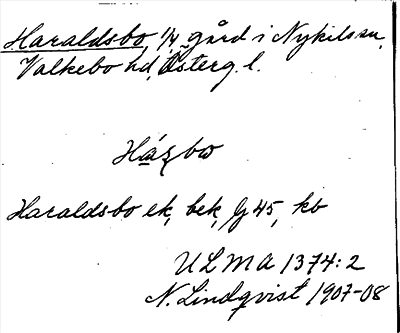 Haraldsbo, 1/4 gård i Nykils sn,
Valkebo hd, Österg. l.
Haraldsbo ek, bek, Jg 45, kb
ULMA 1374:2
N. Lindqvist 1907-08